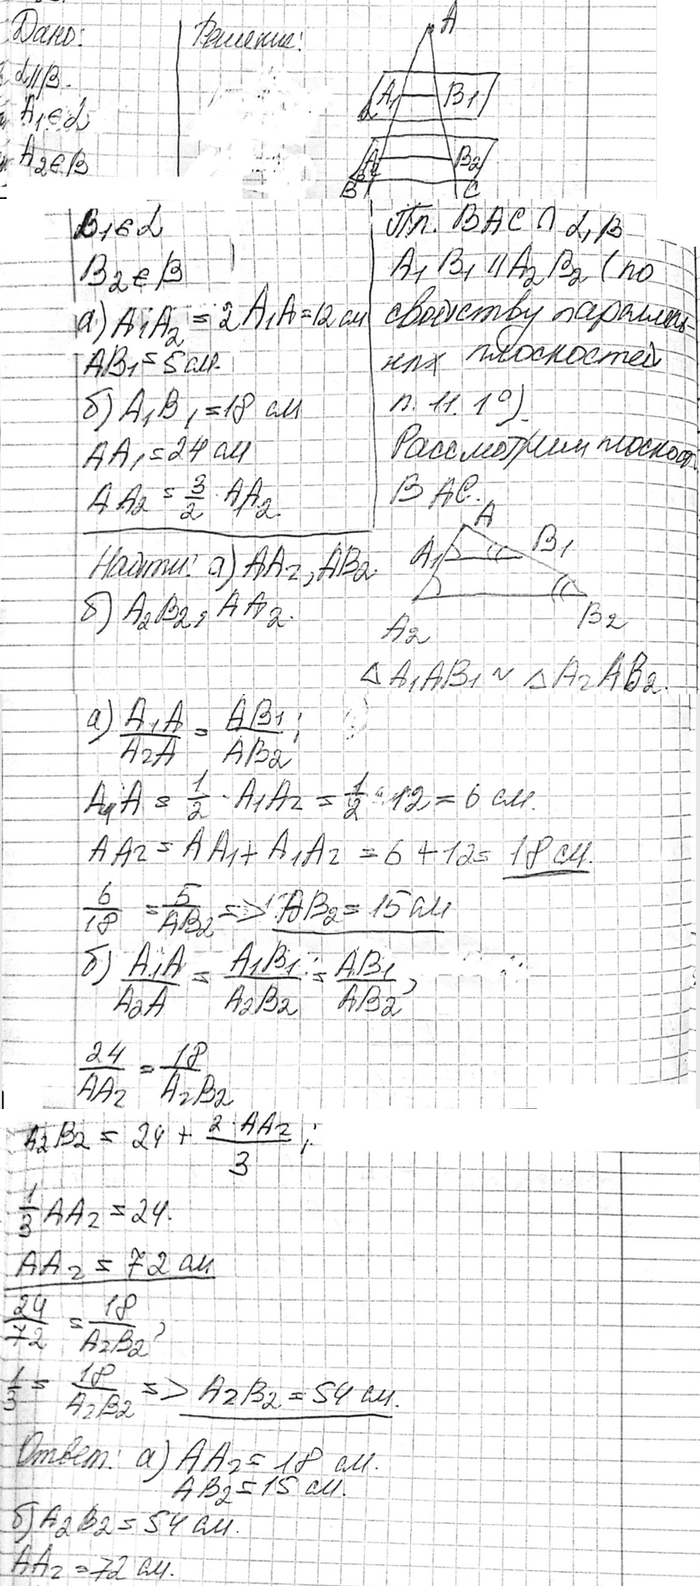 Дано:
Решение:
α||β
A₁∈α
A₂∈β
A
A₁
B₁
α
A₂
B₂
β
B
C
B₁∈α
B₂∈β
а) A₁A₂ = 2A₁A = 12 см
AB₁ = 5 см.
б) A₁B₁ = 18 см
AA₁ = 24 см
AA₂ = 3/2 · AA₂.
Найти: а) AA₂, AB₂.
б) A₂B₂, AA₂.
Пл. BAC ∩ α, β
A₁B₁ || A₂B₂ (по
свойству параллель-
ных плоскостей
п. 11. 1°).
Рассмотрим плоскост.
BAC.
A
A₁
B₁
A₂
B₂
△A₁AB₁ ~ △A₂AB₂.
а) A₁A/A₂A = AB₁/AB₂;
A₁A = 1/2 · A₁A₂ = 1/2 · 12 = 6 см.
AA₂ = AA₁ + A₁A₂ = 6 + 12 = 18 см.
6/18 = 5/AB₂ => AB₂ = 15 см
б) A₁A/A₂A = A₁B₁/A₂B₂ = AB₁/AB₂,
24/AA₂ = 18/A₂B₂
A₂B₂ = 24 + 2·AA₂/3;
1/3 AA₂ = 24.
AA₂ = 72 см
24/72 = 18/A₂B₂,
1/3 = 18/A₂B₂ => A₂B₂ = 54 см.
Ответ: а) AA₂ = 18 см.
AB₂ = 15 см.
б) A₂B₂ = 54 см.
AA₂ = 72 см.